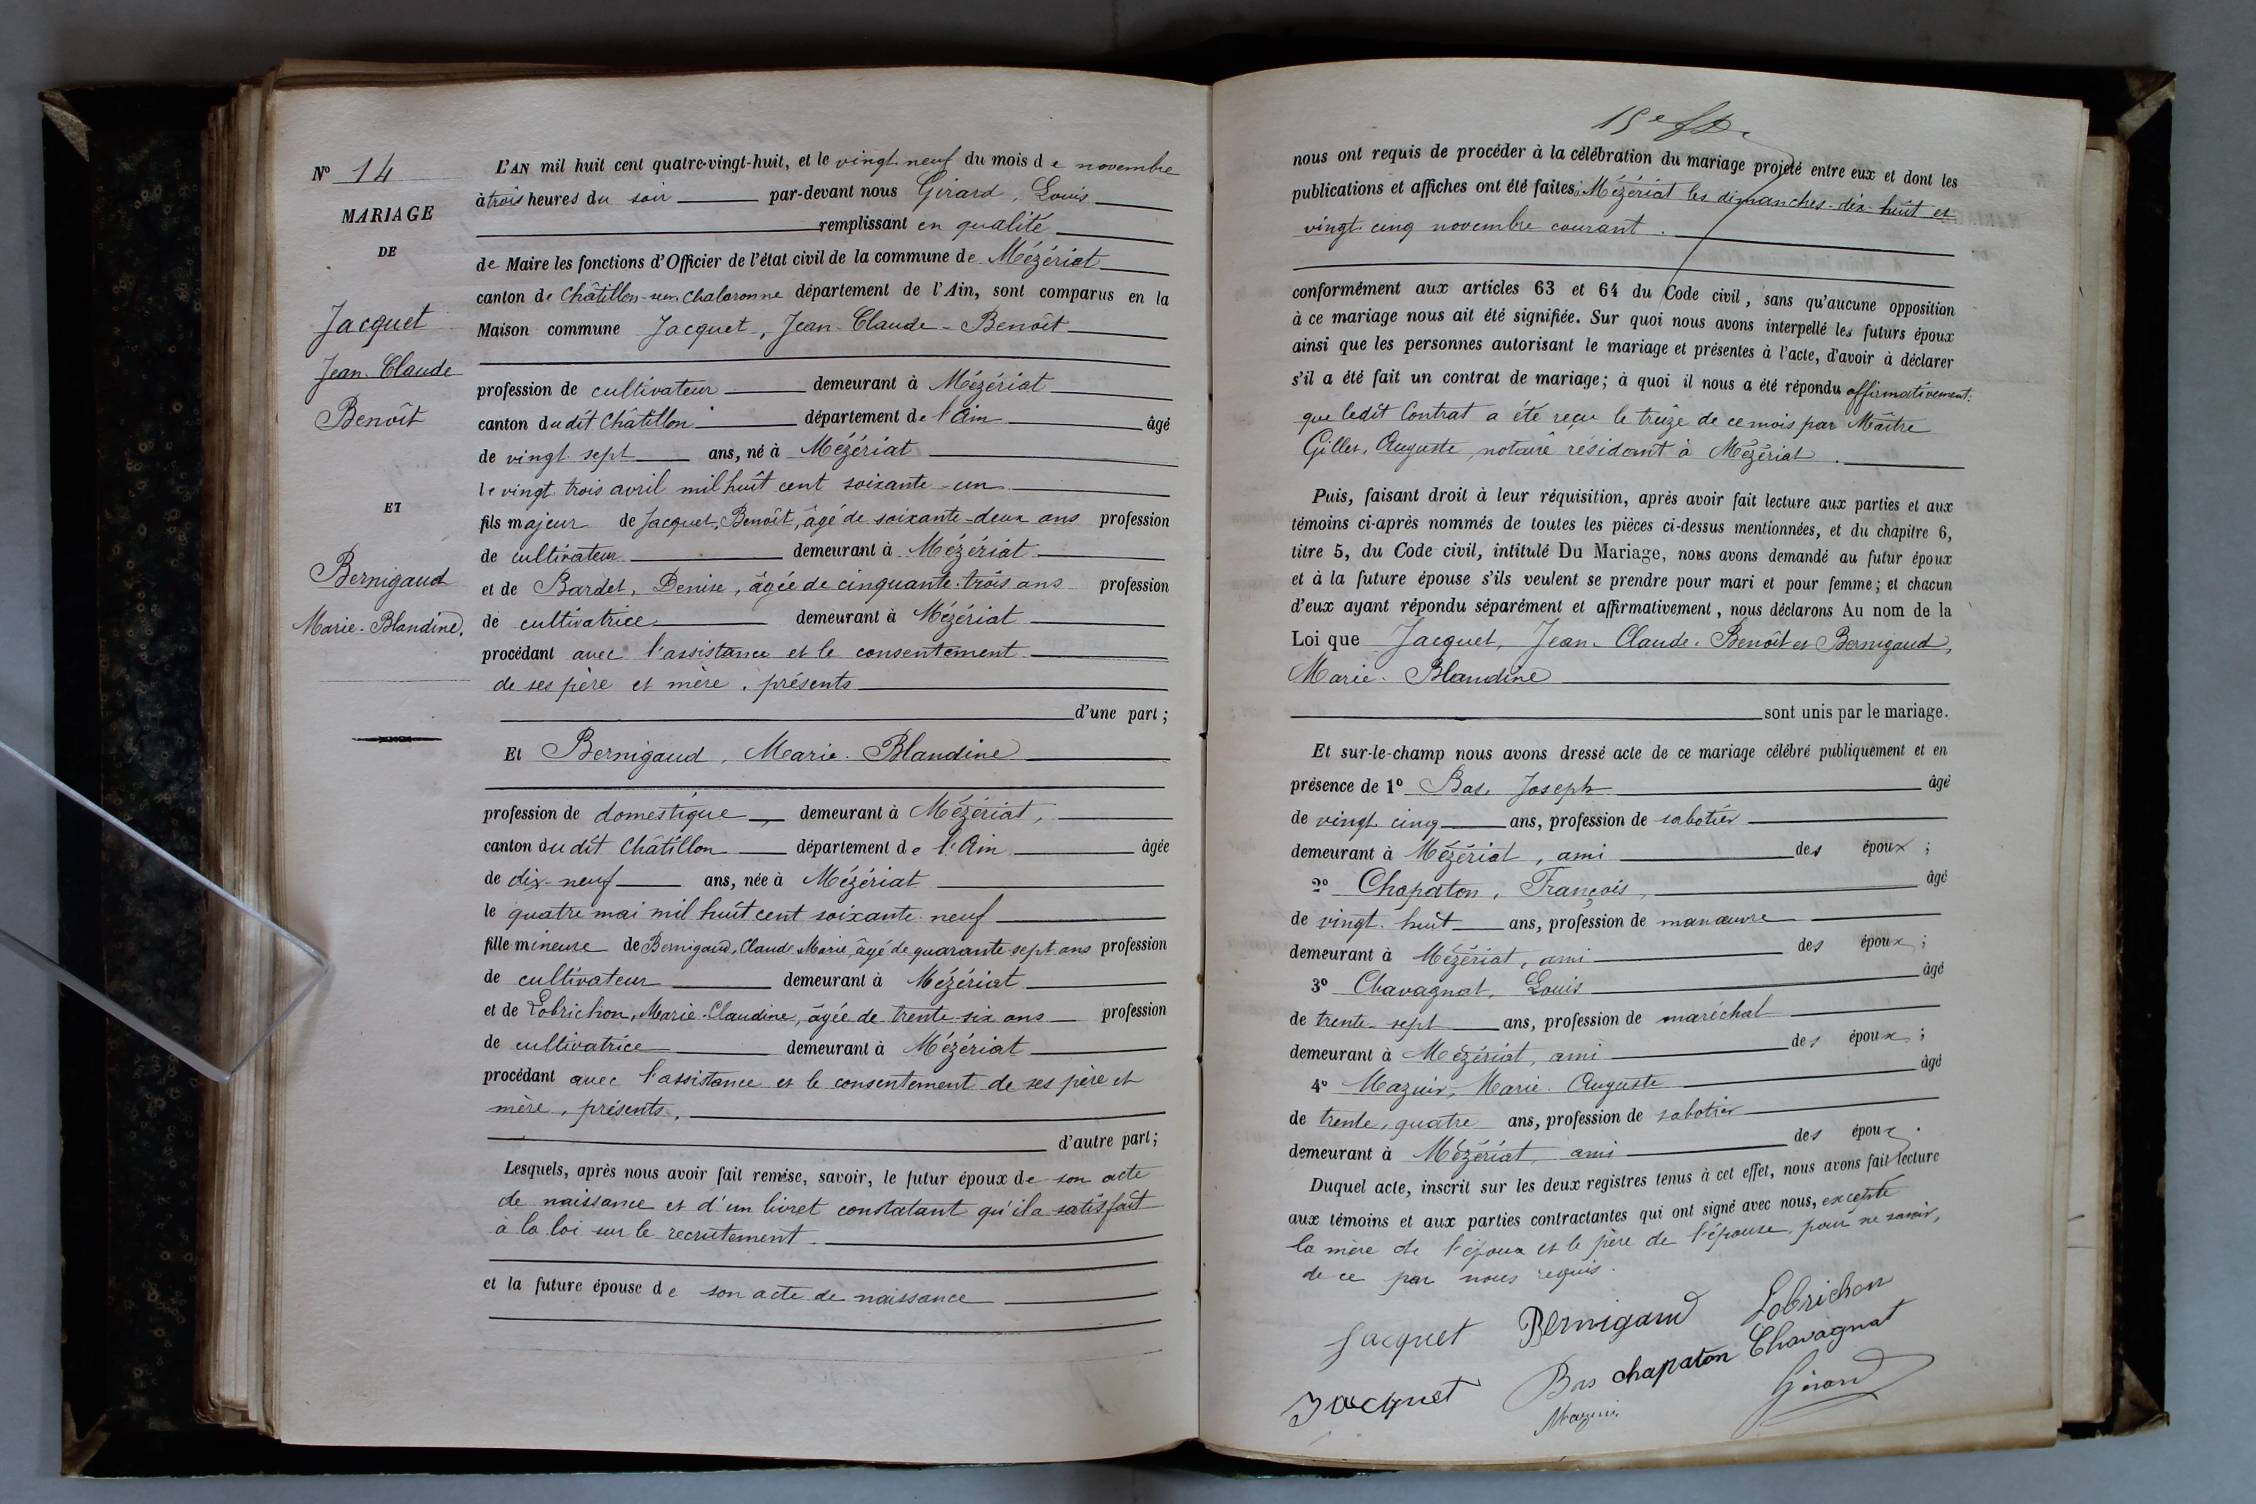 N° 14
MARIAGE
DE
Jacquet
Jean-Claude
Benoît
ET
Bernigaud
Marie-Blandine.
L'AN mil huit cent quatre-vingt-huit, et le vingt neuf du mois de novembre
à trois heures du soir par-devant nous Girard, Louis
remplissant en qualité
de Maire les fonctions d'Officier de l'état civil de la commune de Mézériat
canton de Châtillon-sur-Chalaronne département de l'Ain, sont comparus en la
Maison commune Jacquet, Jean-Claude-Benoît
profession de cultivateur demeurant à Mézériat
canton dudit Châtillon département de l'Ain âgé
de vingt sept ans, né à Mézériat
le vingt trois avril mil huit cent soixante-un
fils majeur de Jacquet, Benoît, âgé de soixante-deux ans profession
de cultivateur demeurant à Mézériat
et de Bardet, Denise, âgée de cinquante-trois ans profession
de cultivatrice demeurant à Mézériat
procédant avec l'assistance et le consentement
de ses père et mère, présents
d'une part;
Et Bernigaud, Marie-Blandine
profession de domestique, demeurant à Mézériat,
canton dudit Châtillon département de l'Ain âgée
de dix-neuf ans, née à Mézériat
le quatre mai mil huit cent soixante-neuf
fille mineure de Bernigaud, Claude Marie, âgé de quarante-sept ans profession
de cultivateur demeurant à Mézériat
et de Lobrichon, Marie-Claudine, âgée de trente-six ans profession
de cultivatrice demeurant à Mézériat
procédant avec l'assistance et le consentement de ses père et
mère, présents,
d'autre part;
Lesquels, après nous avoir fait remise, savoir, le futur époux de son acte
de naissance et d'un livret constatant qu'il a satisfait
à la loi sur le recrutement.
et la future épouse de son acte de naissance
15e
nous ont requis de procéder à la célébration du mariage projeté entre eux et dont les
publications et affiches ont été faites à Mézériat les dimanches dix-huit et
vingt-cinq novembre courant.
conformément aux articles 63 et 64 du Code civil, sans qu'aucune opposition
à ce mariage nous ait été signifiée. Sur quoi nous avons interpellé les futurs époux
ainsi que les personnes autorisant le mariage et présentes à l'acte, d'avoir à déclarer
s'il a été fait un contrat de mariage; à quoi il nous a été répondu affirmativement:
que ledit Contrat a été reçu le treize de ce mois par Maître
Gillet, Auguste, notaire résidant à Mézériat.
Puis, faisant droit à leur réquisition, après avoir fait lecture aux parties et aux
témoins ci-après nommés de toutes les pièces ci-dessus mentionnées, et du chapitre 6,
titre 5, du Code civil, intitulé Du Mariage, nous avons demandé au futur époux
et à la future épouse s'ils veulent se prendre pour mari et pour femme; et chacun
d'eux ayant répondu séparément et affirmativement, nous déclarons Au nom de la
Loi que Jacquet, Jean-Claude-Benoît et Bernigaud,
Marie-Blandine
sont unis par le mariage.
Et sur-le-champ nous avons dressé acte de ce mariage célébré publiquement et en
présence de 1° Bas, Joseph âgé
de vingt cinq ans, profession de sabotier
demeurant à Mézériat, ami des époux;
2° Chapaton, François, âgé
de vingt-huit ans, profession de manœuvre
demeurant à Mézériat, ami des époux;
3° Chavagnat, Louis âgé
de trente-sept ans, profession de maréchal
demeurant à Mézériat, ami des époux;
4° Mazuir, Marie-Auguste âgé
de trente-quatre ans, profession de sabotier
demeurant à Mézériat, ami des époux.
Duquel acte, inscrit sur les deux registres tenus à cet effet, nous avons fait lecture
aux témoins et aux parties contractantes qui ont signé avec nous, excepté
la mère de l'époux et le père de l'épouse, pour ne savoir,
de ce par nous requis.
Jacquet Bernigaud Lobrichon
Jacquet Bas Chapaton Chavagnat
Mazuir Girard